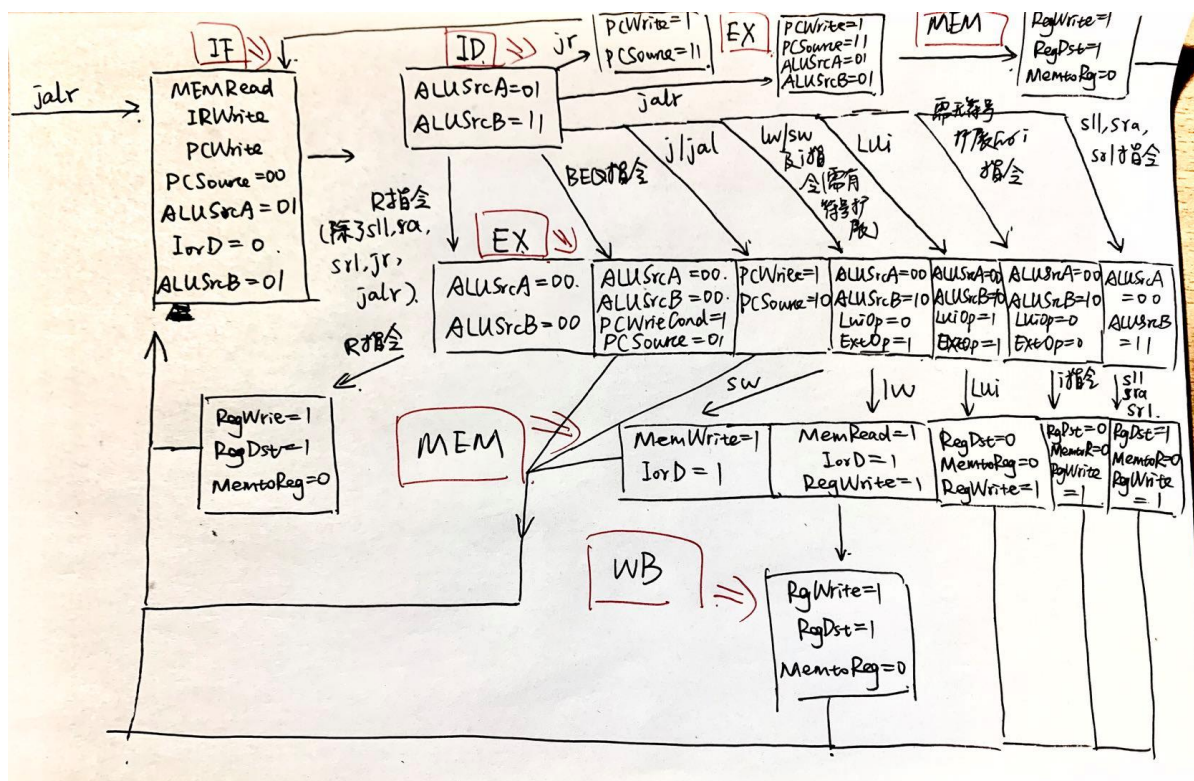 IF
ID
jr
PCWrite=1
PCSource=11
EX
PCWrite=1
PCSource=11
ALUSrcA=01
ALUSrcB=01
MEM
RegWrite=1
RegDst=1
MemtoReg=0
jalr
MEMRead
IRWrite
PCWrite
PCSource=00
ALUSrcA=01
IorD=0
ALUSrcB=01
ALUSrcA=01
ALUSrcB=11
jalr
R指令
(除了sll,sra,
srl,jr,
jalr).
BEQ指令
j/jal
lw/sw
及i指
令(需有
符号扩
展)
Lui
需无符号
扩展的i
指令
sll,sra,
srl指令
EX
ALUSrcA=00.
ALUSrcB=00
ALUSrcA=00.
ALUSrcB=00.
PCWrieCond=1
PCSource=01
PCWrite=1
PCSource=10
ALUSrcA=00
ALUSrcB=10
LuiOp=0
ExtOp=1
ALUSrcA=00
ALUSrcB=10
LuiOp=1
ExtOp=1
ALUSrcA=00
ALUSrcB=10
LuiOp=0
ExtOp=0
ALUSrcA
=00
ALUSrcB
=11
R指令
RegWrie=1
RegDst=1
MemtoReg=0
MEM
sw
lw
Lui
i指令
sll
sra
srl.
MemWrite=1
IorD=1
MemRead=1
IorD=1
RegWrite=1
RegDst=0
MemtoReg=0
RegWrite=1
RgDst=0
MemtoR=0
RgWrite
=1
RgDst=1
MemtoR=0
RgWrite
=1
WB
RgWrite=1
RegDst=1
MemtoReg=0